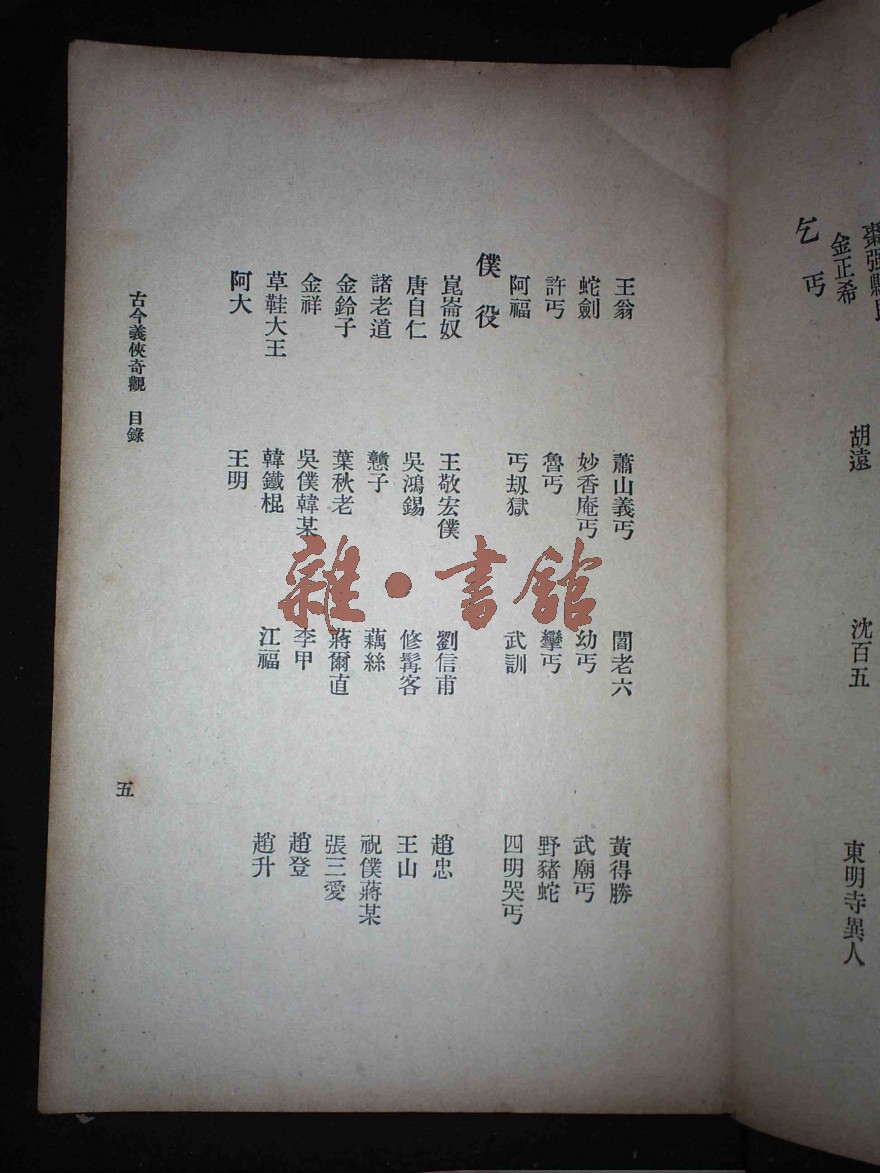 金正希 胡遠 沈百五 東明寺異人
乞丐
王翁 蕭山義丐 閻老六 黃得勝
蛇劍 妙香庵丐 幼丐 武廟丐
許丐 魯丐 孿丐 野豬蛇
阿福 丐刼獄 武訓 四明哭丐
僕役
崑崙奴 王敬宏僕 劉信甫 趙忠
唐自仁 吳鴻錫 修髯客 王山
諸老道 戇子 藕絲 祝僕蔣某
金鈴子 葉秋老 蔣爾直 張三愛
金祥 吳僕韓某 李甲 趙登
草鞋大王 韓鐵棍 江福 趙升
阿大 王明
古今義俠奇觀 目錄 五
雜·書館